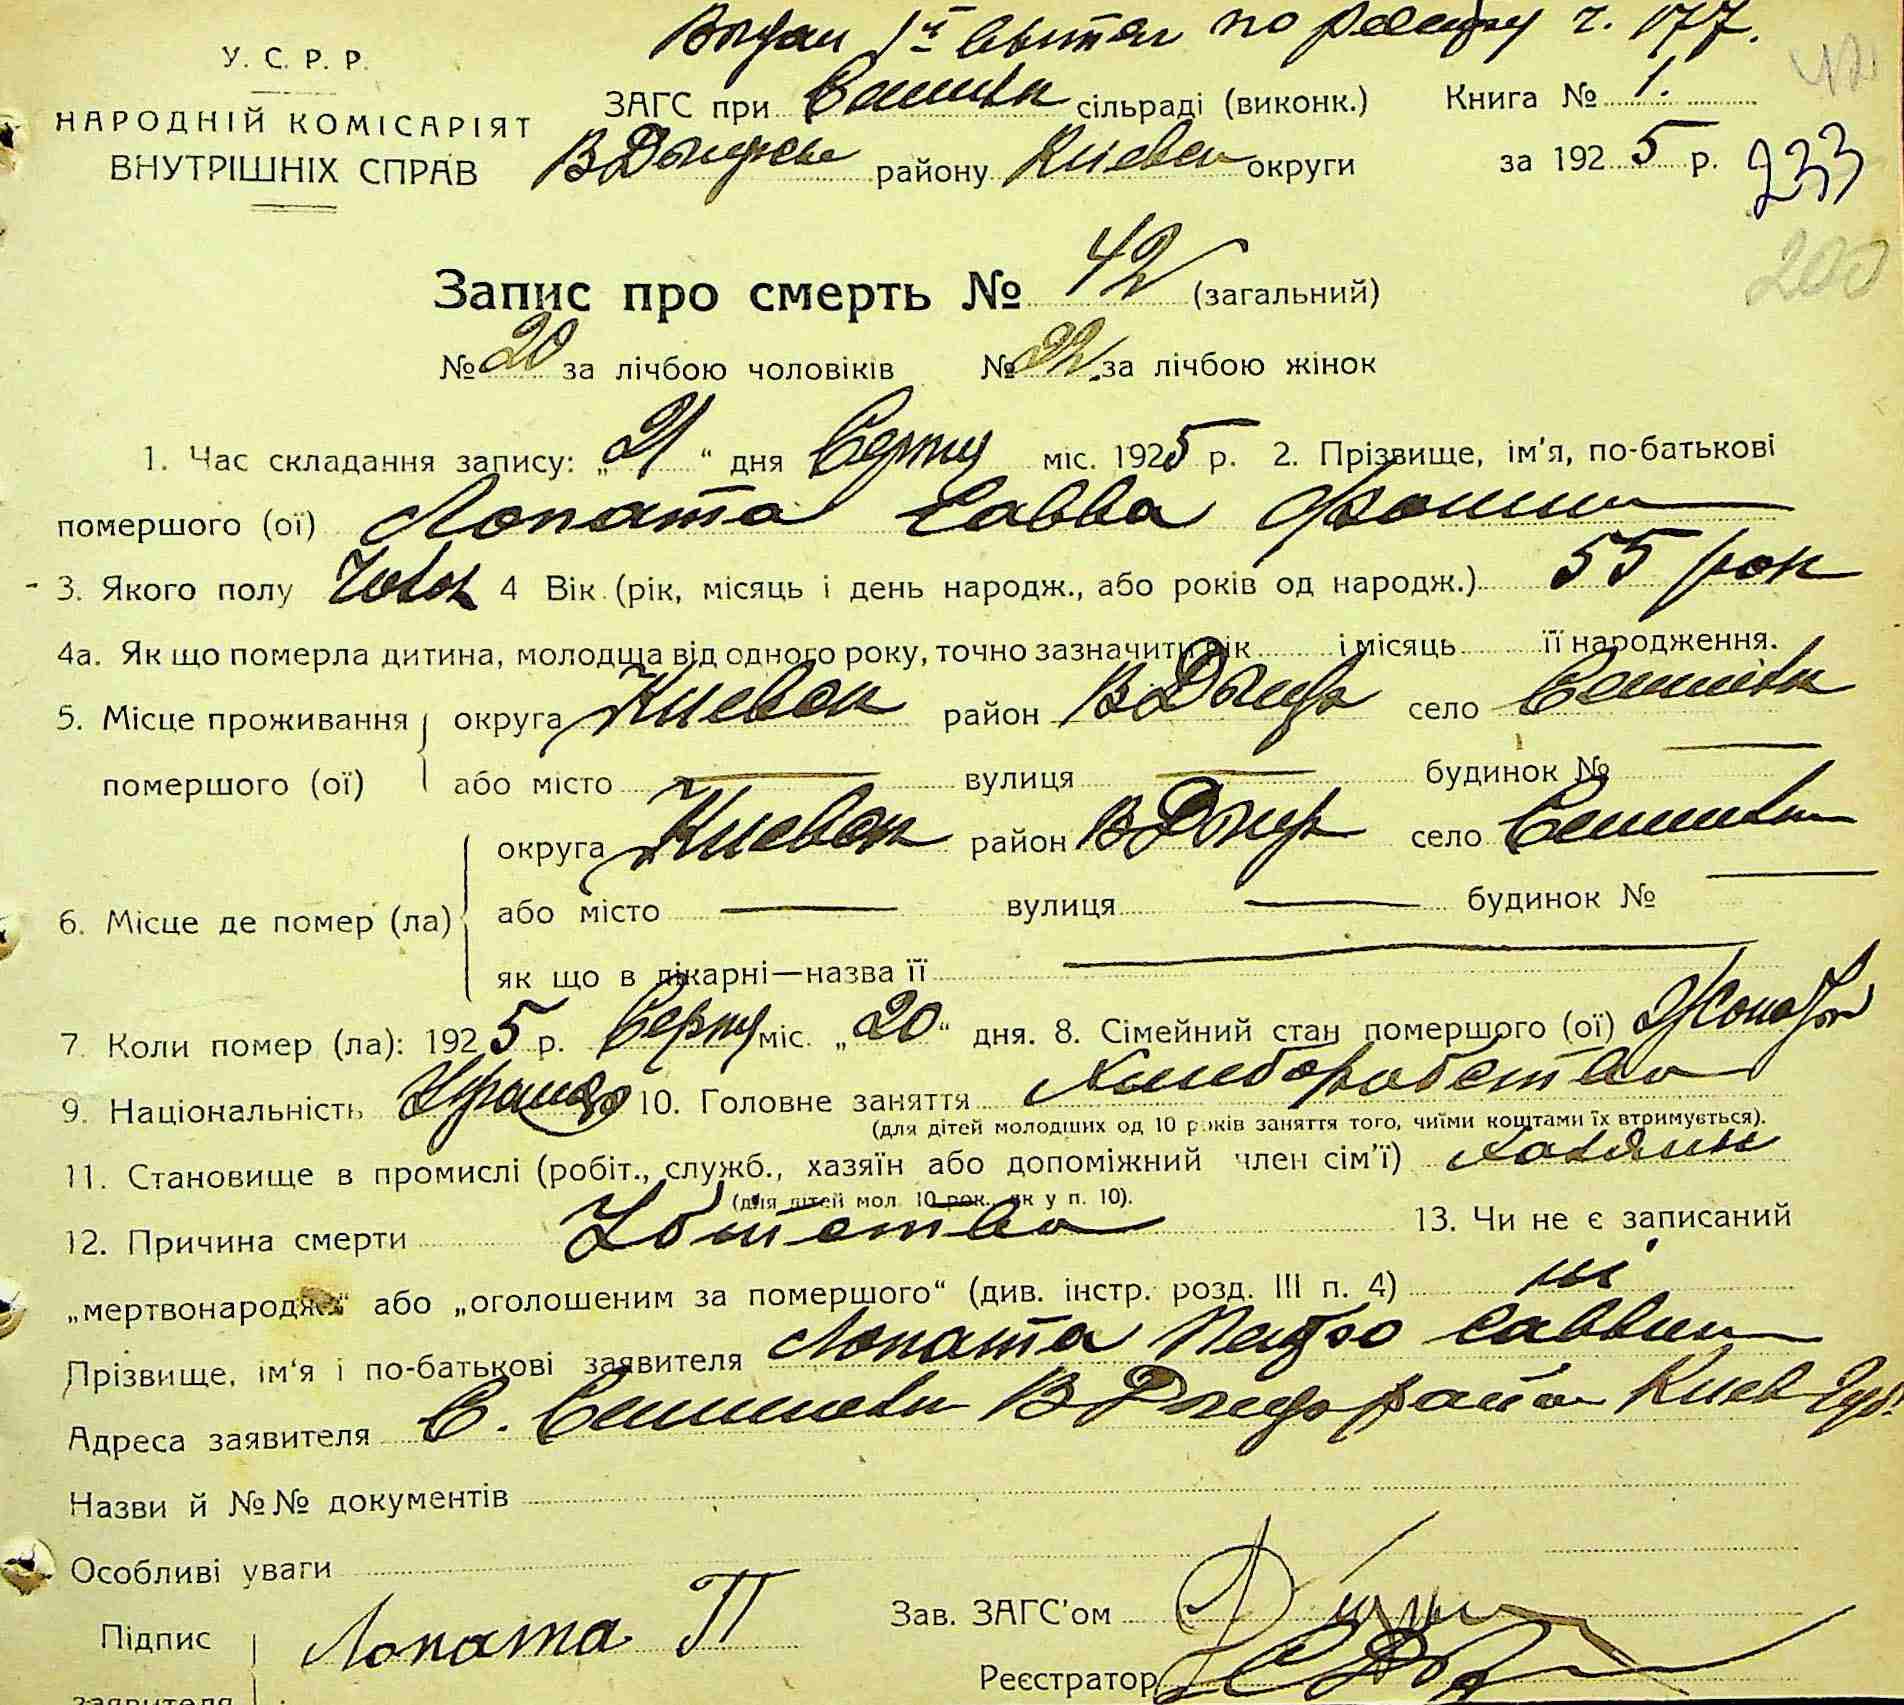 Выдан 1й вытяг по реестру г. 177.
У. С. Р. Р.
42
ЗАГС при Сошник сільраді (виконк.) Книга № 1.
НАРОДНІЙ КОМІСАРІЯТ
ВНУТРІШНІХ СПРАВ
В Дымерск району Киевск округи за 1925 р. 233
200
Запис про смерть № 42 (загальний)
№ 20 за лічбою чоловіків № 22 за лічбою жінок
1. Час складання запису: „21“ дня Серпн міс. 1925 р. 2. Прізвище, ім'я, по-батькові
помершого (ої) Лопата Савва Фомин
3. Якого полу Чолов 4 Вік (рік, місяць і день народж., або років од народж.) 55 рок
4а. Як що померла дитина, молодща від одного року, точно зазначити рік і місяць її народження.
5. Місце проживання округа Киевск район В Дымер село
помершого (ої) або місто — вулиця — будинок № —
округа Киевск район В Дымер село
6. Місце де помер (ла) або місто — вулиця — будинок № —
як що в лікарні—назва її —
7. Коли помер (ла): 1925 р. Серпн міс. „20“ дня. 8. Сімейний стан помершого (ої)
9. Національність 10. Головне заняття Хлиборобство
(для дітей молодших од 10 років заняття того, чиїми коштами їх втримується).
11. Становище в промислі (робіт., служб., хазяїн або допоміжний член сім'ї) Хозяин
(для дітей мол. 10 рок., як у п. 10).
12. Причина смерти Убийство 13. Чи не є записаний
„мертвонародж“ або „оголошеним за помершого“ (див. інстр. розд. III п. 4) ні
Прізвище, ім'я і по-батькові заявителя Лопата Петро Саввин
Адреса заявителя С. В Дымер район Киев Губ.
Назви й №№ документів
Особливі уваги
Підпис Лопата П Зав. ЗАГС'ом
Реєстратор
заявителя